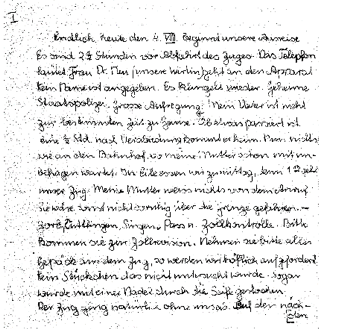 I
Endlich, heute den 4. VIII. beginnt unsere Ausreise
Es sind 2½ Stunden vor Abfahrt des Zuges. Das Telephon
läutet Frau Dr. Neu unsere Wirtin geht an den Apparat
kein Name ist angegeben. Es klingelt wieder. Geheime
Staatspolizei. Grosse Aufregung! Mein Vater ist nicht
zur bestimmten Zeit zu Hause. Ob etwas passiert ist
eine ½ Std. nach Verabredung kommt er heim. Nun nichts
wie an den Bahnhof, wo meine Mutter schon mit
wartet. In Eile essen wir zu mittag, denn 1 geht
unser Zug. Meine Mutter weiss nichts von dem Anruf
sie wäre sonst nicht ruhig über die Grenze gefahren.—
Tuttlingen, Singen, Pass u. Zollkontrolle. Bitte
kommen sie zur Zollrevision. Nehmen sie bitte alles
Gepäck aus dem Zug, so werden wir höflich aufgefordert
kein Stückchen das nicht untersucht wurde. Sogar
wurde mit einer Nadel durch die Seife gestochen
Der Zug ging natürlich ohne uns ab. Auf den näch-
sten